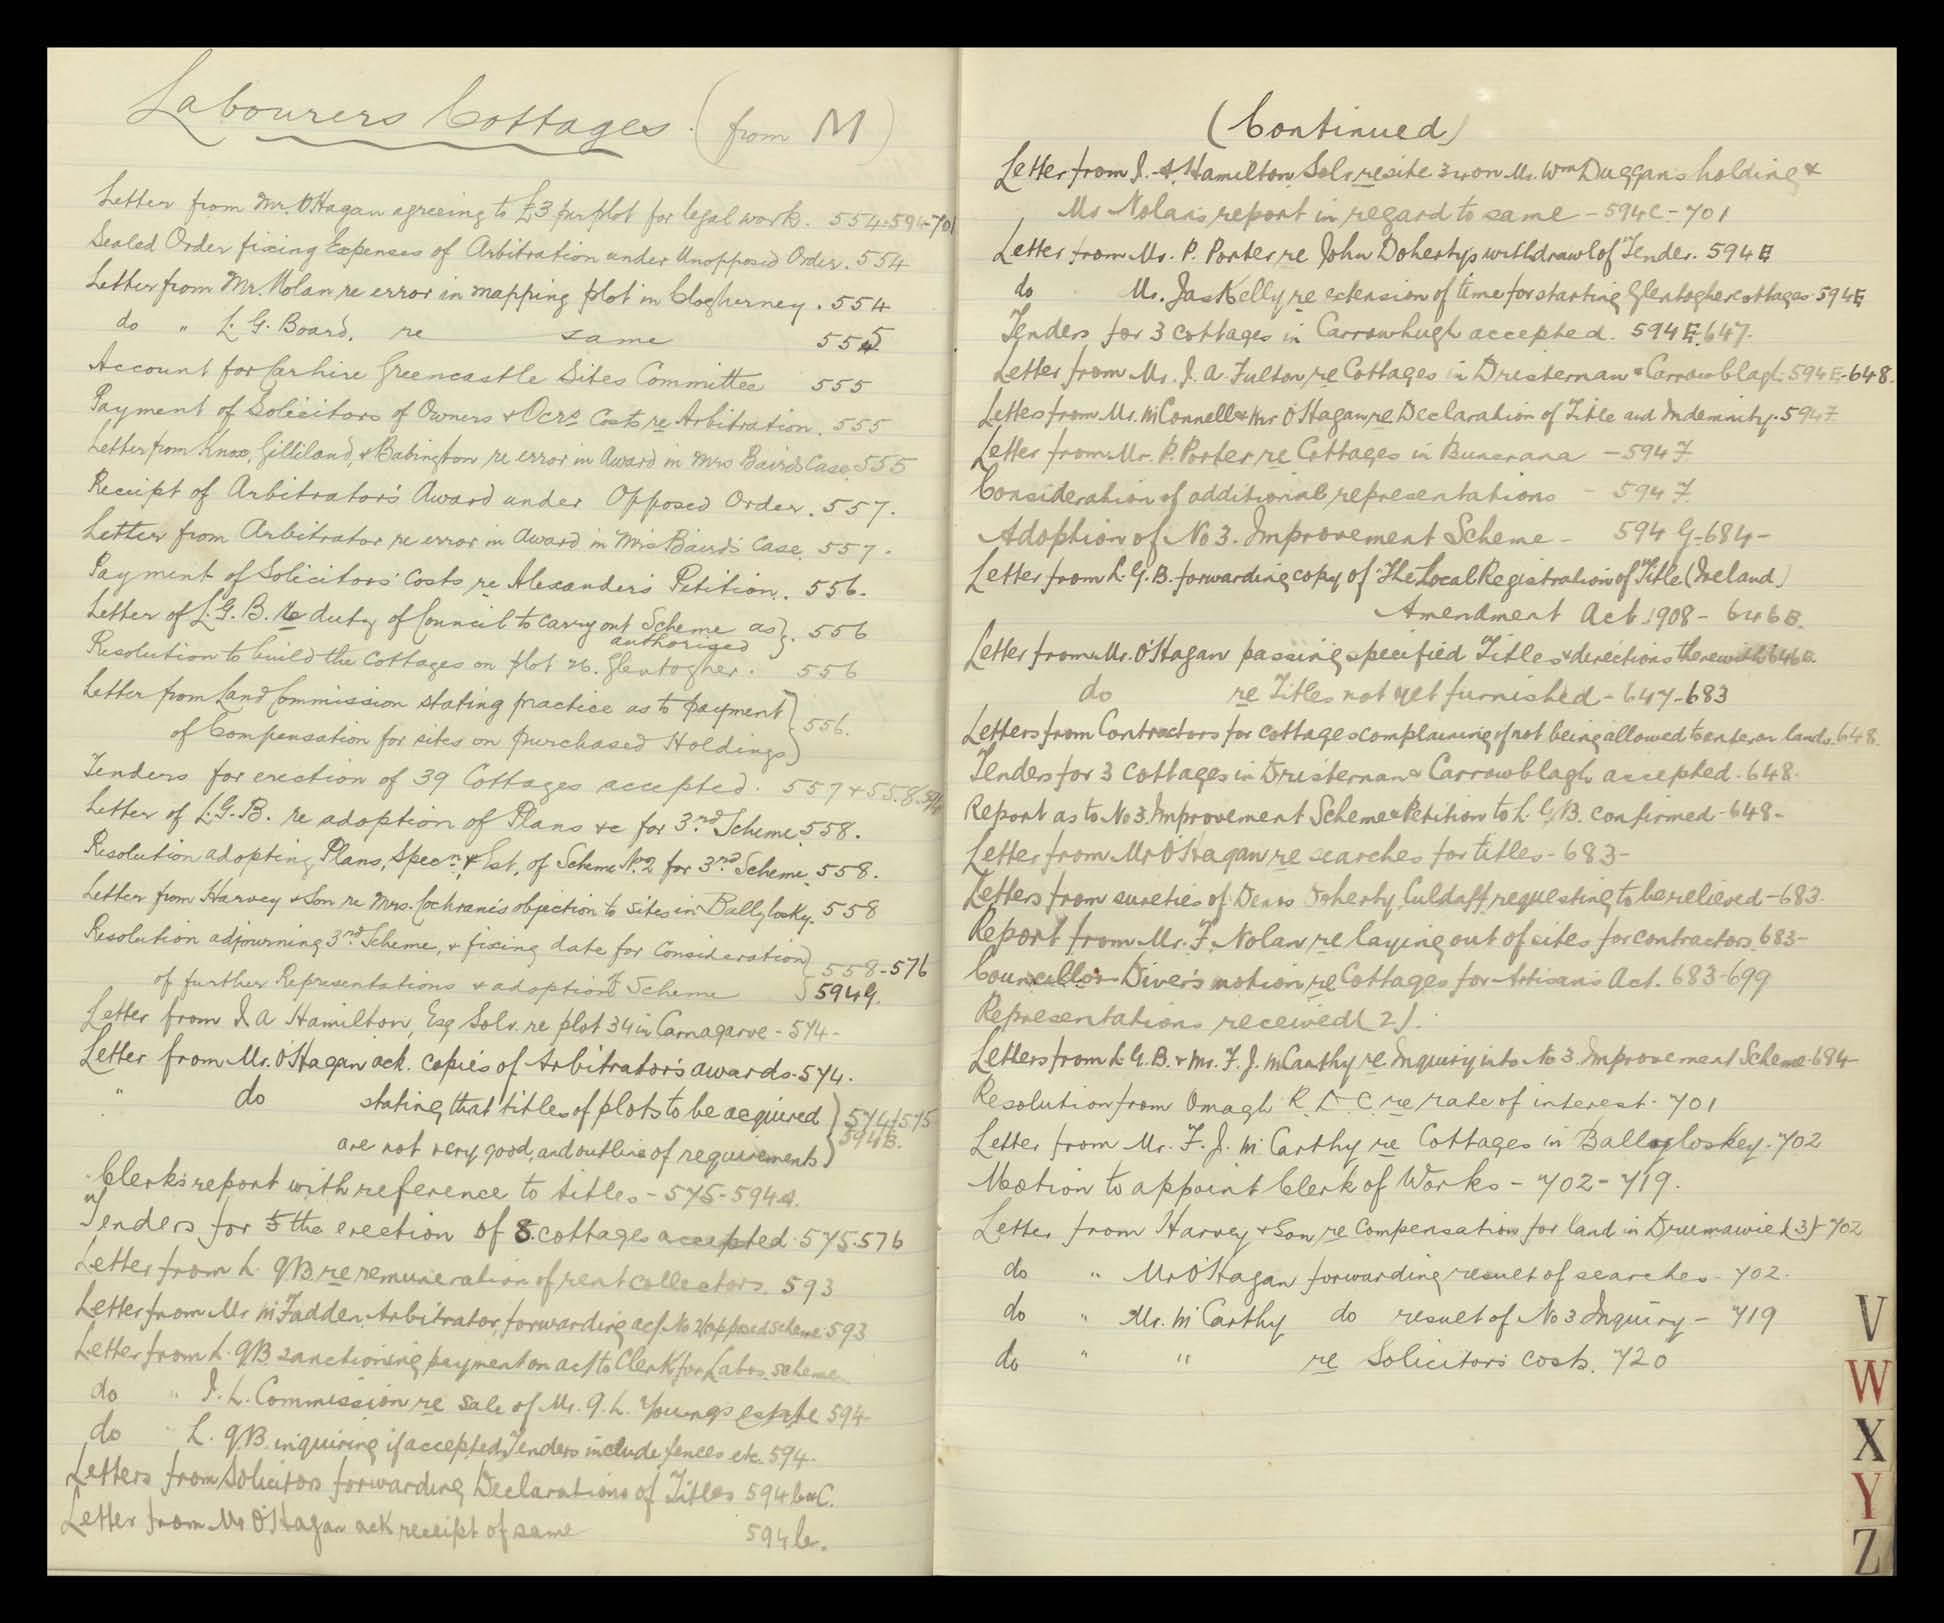 Labourers Cottages. (from M)
Letter from Mr. O'Hagan agreeing to £3 per plot for legal work. 554-594-701
Sealed Order fixing Expenses of Arbitration under Unopposed Order. 554
Letter from Mr. Nolan re error in mapping plot in Clogherney. 554
do " L. G. Board. re same 555
Account for Carhire Greencastle Sites Committee 555
Payment of Solicitors of Owners & Ocrs Costs re Arbitration. 555
Letter from Knox, Gilliland, & Babington re error in Award in Mrs Baird's Case. 555
Receipt of Arbitrator's Award under Opposed Order. 557.
Letter from Arbitrator re error in Award in Mrs Baird's Case 557.
Payment of Solicitors' Costs re Alexander's Petition. 556.
Letter of L. G. B. re duty of Council to carry out Scheme as
authorised } . 556
Resolution to build the Cottages on plot 26. Glentogher. 556
Letter from Land Commission stating practice as to payment
of Compensation for sites on purchased Holdings } 556.
Tenders for erection of 39 Cottages accepted. 557 & 558.
Letter of L. G. B. re adoption of Plans &c for 3rd Scheme 558.
Resolution adopting Plans, Specn., & Est, of Scheme No. 2 for 3rd Scheme. 558.
Letter from Harvey & Son re Mrs. Cochrane's objection to sites in Ballylosky. 558
Resolution adjourning 3rd Scheme, & fixing date for Consideration
of further Representations & adoption of Scheme } 558-576
594G.
Letter from J A Hamilton, Esq Solr. re plot 34 in Carnagarve - 574-
Letter from Mr. O'Hagan ack. copies of Arbitrator's awards. 574.
" do stating that titles of plots to be acquired
are not very good, and outline of requirements } 574/575
594B.
Clerk's report with reference to titles - 575-594A.
Tenders for the erection of 8 cottages accepted. 575.576
Letter from L. GB re remuneration of rent collectors. 593
Letter from Mr McFadden, Arbitrator, forwarding a/c No 2 opposed scheme 593
Letter from L. GB sanctioning payment on a/c to Clerk for Labrs. scheme
do " I. L. Commission re sale of Mr. G. L. Young's estate 594-
do L. GB. inquiring if accepted Tenders include fences etc. 594-
Letters from Solicitors forwarding Declarations of Titles 594 b&C.
Letter from Mr O'Hagan ack receipt of same 594 b.
(Continued)
Letter from J. A. Hamilton, Solr re site 34 on Mr. Wm Duggan's holding &
Mr Nolan's report in regard to same - 594C - 701
Letter from Mr. P. Porter re John Doherty's withdrawl of Tender. 594 E
do Mr. Jas Kelly re extension of time for starting Glentogher cottages 594E
Tenders for 3 cottages in Carrowhugh accepted. 594 E. 647.
Letter from Mr. J. A. Fulton re Cottages in Dristernan & Carrowblagh 594 E-648.
Letters from Mr. McConnell & Mr O'Hagan re Declaration of Title and Indemnity. 594F
Letter from Mr. P. Porter re Cottages in Buncrana - 594 F
Consideration of additional representations - 594 F.
Adoption of No 3. Improvement Scheme - 594 G-684-
Letter from L. G. B. forwarding copy of "The Local Registration of Title (Ireland)
Amendment Act 1908 - 646 B.
Letter from Mr. O'Hagan passing specified Titles & directions therewith 646 B.
do re Titles not yet furnished - 647-683
Letters from Contractors for cottages complaining of not being allowed to enter on lands. 648.
Tenders for 3 cottages in Dristernan & Carrowblagh accepted. 648.
Report as to No 3. Improvement Scheme & Petition to L. G. B. confirmed - 648-
Letter from Mr O'Hagan re searches for titles - 683-
Letters from sureties of Denis Doherty, Culdaff requesting to be relieved - 683.
Report from Mr. F. Nolan re laying out of sites for contractors. 683-
Councillor Diver's motion re Cottages for Artisans Act. 683-699
Representations received (2).
Letters from L. G. B. & Mr. F. J. McCarthy re Inquiry into No 3. Improvement Scheme - 684-
Resolution from Omagh R. D. C. re rate of interest. 701
Letter from Mr. F. J. McCarthy re Cottages in Ballyloskey. 702
Motion to appoint Clerk of Works - 702-719.
Letter from Harvey & Son re Compensation for land in Drumawier (3) - 702
do " Mr O'Hagan forwarding result of searches - 702.
do " Mr. McCarthy do result of No 3 Inquiry - 719
do " " re Solicitors costs. 720
V
W
X
Y
Z